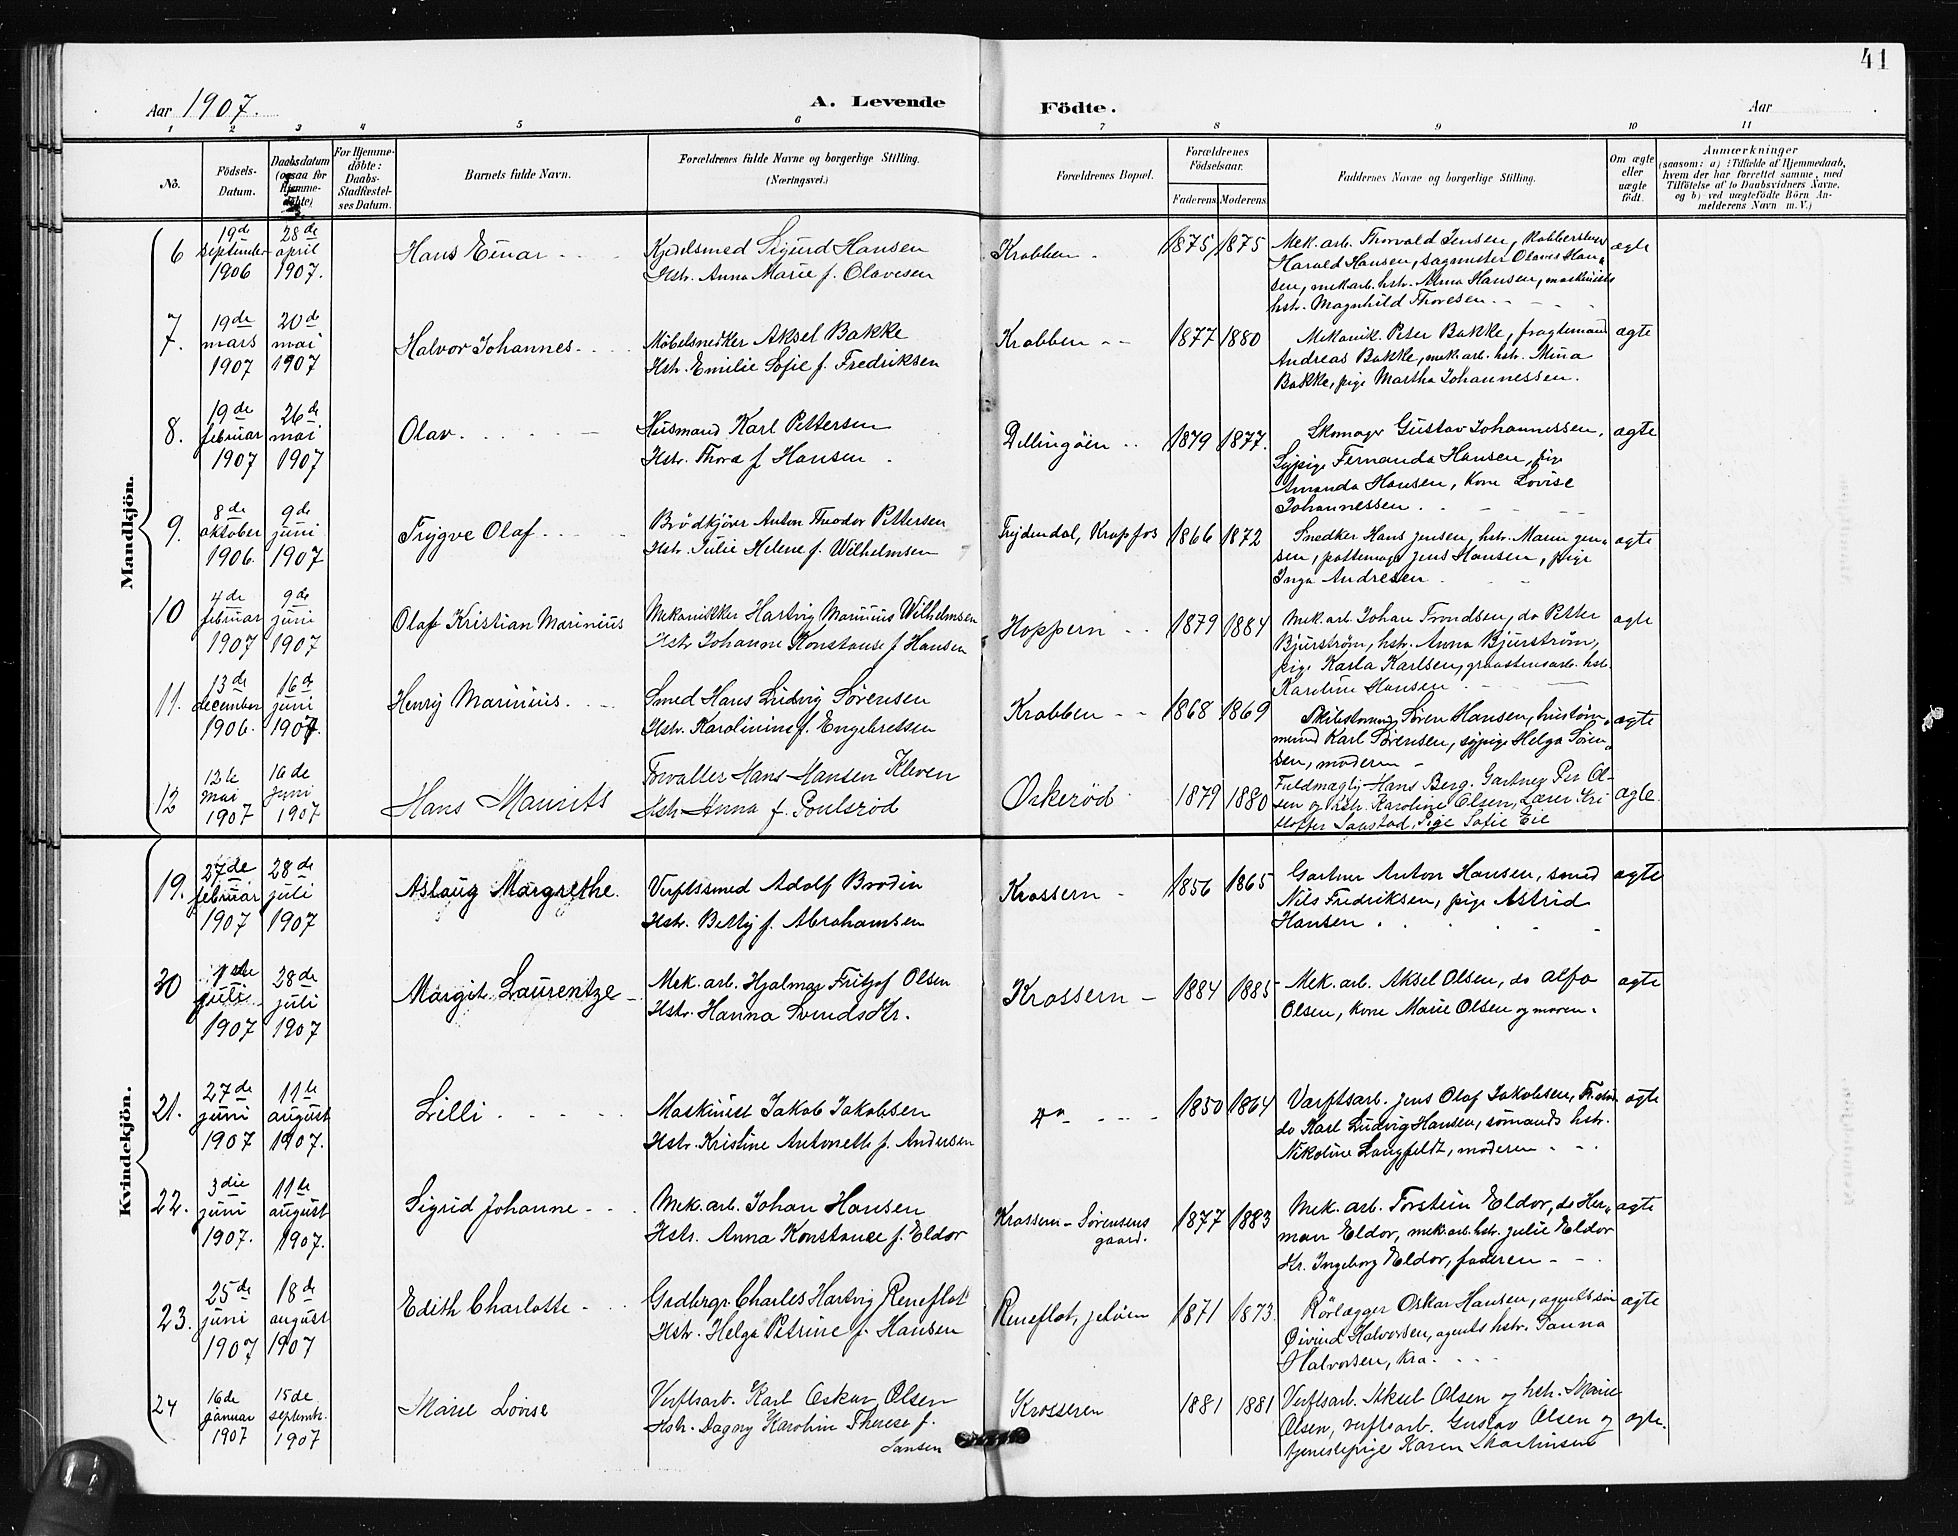 41
Aar 1907.
A. Levende Födte.
Aar
1 2 3 4 5 6 7 8 9 10 11
No.
Födsels-
Datum.
Daabsdatum
(ogsaa for
Hjemme-
døbte)
For Hjemme-
döbte:
Daabs-
Stadfæstel-
ses Datum.
Barnets fulde Navn.
Forældrenes fulde Navne og borgerlige Stilling.
(Næringsvei.)
Forældrenes Bopæl.
Forældrenes
Födselsaar.
Faderens Moderens
Faddernes Navne og borgerlige Stilling.
Om ægte
eller
uægte
födt.
Anmærkninger
(saasom: a) i Tilfælde af Hjemmedaab,
hvem der har forrettet samme, med
Tilföielse af to Daabsvidners Navne,
og b) ved uægtefödte Börn An-
melderens Navn m. V.)
Mandkjön.
6 19de september 1906 28de april 1907. Hans Einar
Kjedelsmed Sigurd Hansen
Hstr. Anna Marie f. Olavesen
Krabben 1875 1875
Mek. arb. Thorvald Jensen,
Harald Hansen, sagmester Olaves Han-
sen, mek.arb. hstr. Alma Hansen, maskinists
hstr. Magnhild Thoresen
ægte
7. 19de mars 1907 20de mai 1907 Halvor Johannes
Møbelsnedker Aksel Bakke
Hstr. Emilie Sofie f. Fredriksen
Krabben 1877 1880
Mekanik. Peter Bakke, fragtemand
Andreas Bakke, mek.arb. hstr. Mina
Bakke, pige Martha Johannessen.
ægte
8. 19de februar 1907 26de mai 1907 Olav
Husmand Karl Pettersen
Hstr. Thora f Hansen
Dillingöen 1879 1877.
Skomager Gustav Johannessen,
Sypige Fernanda Hansen, pige
Amanda Hansen, kone Lovise
Johannessen
ægte
9. 8de oktober 1906. 9de juni 1907 Trygve Olaf
Brödkjører Anton Theodor Pettersen
Hstr. Julie Helene f. Wilhelmsen
Frydendal, Krapfos 1866 1872
Snedker Hans Jensen, hstr. Marie Jen-
sen, pottemager Jens Hansen, pige
Inga Andresen
ægte
10 4de februar 1907 9de juni 1907 Olaf Kristian Marinius
Mekanikker Hartvig Marinius Wilhelmsen
Hstr Johanne Konstanse f Hansen
Hoppern 1879 1884
Mek. arb. Johan Trondsen, do Petter
Bjurström, hstr. Anna Bjurström,
pige Karla Karlsen, graastensarb. hstr.
Karoline Hansen
ægte
11. 13de december 1906. 16de juni 1907 Henry Marinius.
Smed Hans Ludvig Sørensen
Hstr. Karolinine f. Engebretsen
Krabben 1868 1869
Søren Hansen,
mand Karl Sørensen, sypige Helga Søren-
sen, moderen
ægte
12 12te mai 1907 16de juni 1907 Hans Maurits
Forvalter Hans Hansen Kleven
Hstr Anna f. Poulsrød
Orkerød 1879 1880
Fuldmægtig Hans Berg. Gartner Per Ol-
sen og hstr. Karoline Olsen, Lærer Kri
stoffer Saastad, Pige Sofie Eie
ægte.
Kvindekjön.
19. 27de februar 1907 28de juli 1907 Aslaug Margrethe.
Verftssmed Adolf Brodin
Hstr. Betty f. Abrahamsen
Krossern 1856 1865
Gartner Anton Hansen, smed
Nils Fredriksen, pige Astrid
Hansen
ægte
20 1ste juli 1907 28de juli 1907 Margit Laurentze
Mek. arb. Hjalmar Fritjof Olsen
Hstr. Hanna Svends Kr.
Krossern 1884 1885
Mek. arb. Aksel Olsen, do Alfa
Olsen, kone Marie Olsen og moren.
ægte
21. 27de juni 1907 11te august 1907. Lilli
Maskinist Jakob Jakobsen
Hstr. Kristine Antonette f. Andersen
do 1850 1864
Værftsarb. Jens Olaf Jakobsen,
do Karl Ludvig Hansen, sömands hstr.
Nikoline Langfeldt, moderen
ægte
22. 3die juni 1907. 11te august 1907. Sigrid Johanne
Mek. arb. Johan Hansen
Hstr. Anna Konstance f. Eldor
Krossern - Sørensens
gaard. 1877 1883
Mek. arb. Torstein Eldor, do Her-
man Eldor, mek.arb. hstr. Julie Eldor
Kr. Ingeborg Eldor, faderen
ægte
23. 25de juni 1907 18de august 1907 Edith Charlotte
Gaardbrgr. Charles Hartvig Reneflot
Hstr. Helga Petrine f. Hansen
Reneflot, Jelöen 1871 1873.
Rörlægger Oskar Hansen, agents sön
Öivind Halvorsen, agents hstr. Sanna
Halvorsen, Kra.
ægte
24 16de januar 1907 15de septembr. 1907 Marie Lovise
Verftsarb. Karl Oskar Olsen
Hstr. Dagny Karolin Therese f.
Jansen
Krosseren 1881 1881
Verftsarb. Aksel Olsen og hstr. Marie
Olsen, verftsarb. Gustav Olsen og
tjenestepige Karen Martinsen
ægte.